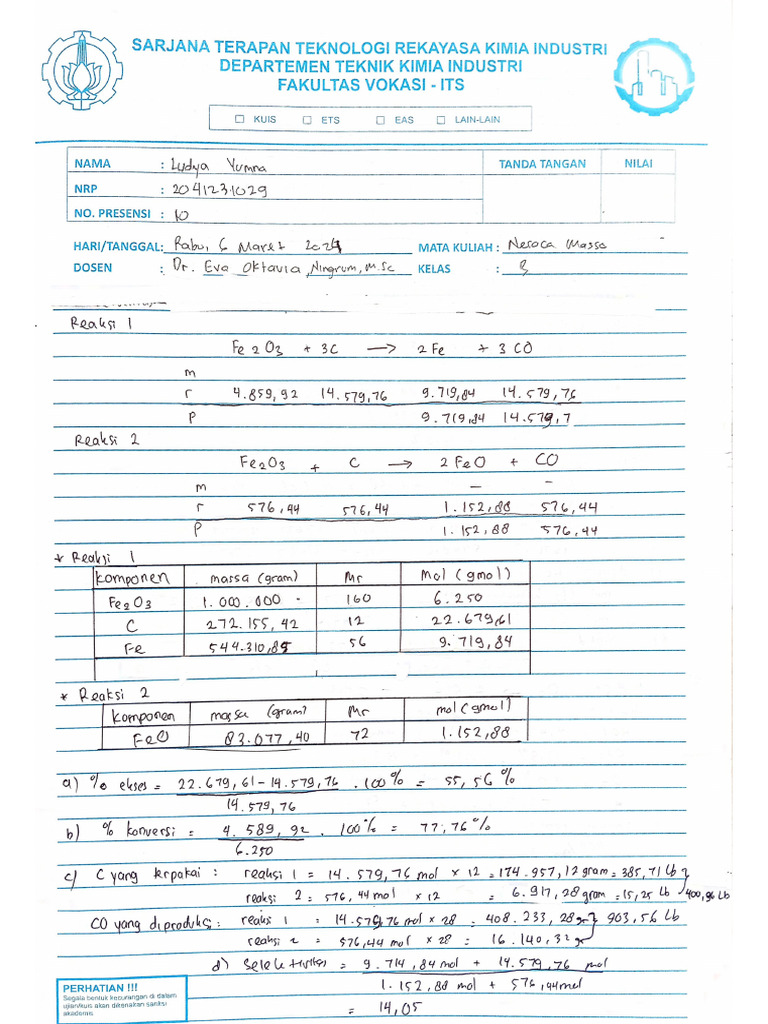 SARJANA TERAPAN TEKNOLOGI REKAYASA KIMIA INDUSTRI
DEPARTEMEN TEKNIK KIMIA INDUSTRI
FAKULTAS VOKASI - ITS
☐ KUIS ☐ ETS ☐ EAS ☐ LAIN-LAIN
NAMA : Ludya Yumna TANDA TANGAN NILAI
NRP : 2041231029
NO. PRESENSI : 10
HARI/TANGGAL: Rabu, 6 Maret 2024 MATA KULIAH : Neraca Massa
DOSEN : Dr. Eva Oktavia Ningrum, M.Sc KELAS : B
Reaksi 1
Fe2O3 + 3C → 2Fe + 3CO
m
r 4.859,92 14.579,76 9.719,84 14.579,76
P 9.719,84 14.579,7
Reaksi 2
Fe2O3 + C → 2FeO + CO
m - -
r 576,44 576,44 1.152,88 576,44
P 1.152,88 576,44
* Reaksi 1
Komponen massa (gram) Mr Mol (gmol)
Fe2O3 1.000.000 - 160 6.250
C 272.155,42 12 22.679,61
Fe 544.310,85 56 9.719,84
* Reaksi 2
Komponen massa (gram) Mr mol (gmol)
FeO 83.077,40 72 1.152,88
a) % ekses = 22.679,61 - 14.579,76 . 100% = 55,56%
14.579,76
b) % konversi = 4.589,92 . 100% = 77,76%
6.250
c) C yang terpakai : reaksi 1 = 14.579,76 mol x 12 = 174.957,12 gram = 385,71 lb
reaksi 2 = 576,44 mol x 12 = 6.917,28 gram = 15,25 lb 400,96 Lb
CO yang diproduksi : reaksi 1 = 14.579,76 mol x 28 = 408.233,28 gr 903,56 Lb
reaksi 2 = 576,44 mol x 28 = 16.140,32 gr
d) Selektivitas = 9.714,84 mol + 14.579,76 mol
1.152,88 mol + 576,44 mol
= 14,05
PERHATIAN !!!
Segala bentuk kecurangan di dalam
ujian/kuis akan dikenakan sanksi
akademis